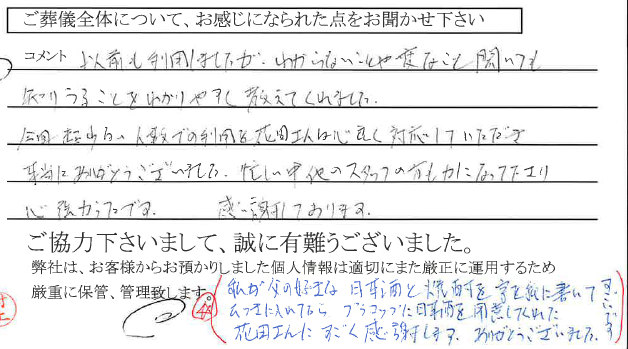 ご葬儀全体について、お感じになられた点をお聞かせ下さい
コメント 以前も利用しましたが、わからないことや変なこと聞いても
ことをわかりやすく教えてくれました。
今回 人数での利用を花田さんは心良く対応していただき
本当にありがとうございました。忙しい中他のスタッフの方も力になって下さり
心強かったです。 感謝しております。
ご協力下さいまして、誠に有難うございました。
弊社は、お客様からお預かりしました個人情報は適切にまた厳正に運用するため
厳重に保管、管理致します。
私が父の好きな日本酒と焼酎を字を紙に書いて
入れてたら プラコップに日本酒を用意してくれた
花田さんにすごく感謝します。ありがとうございました。